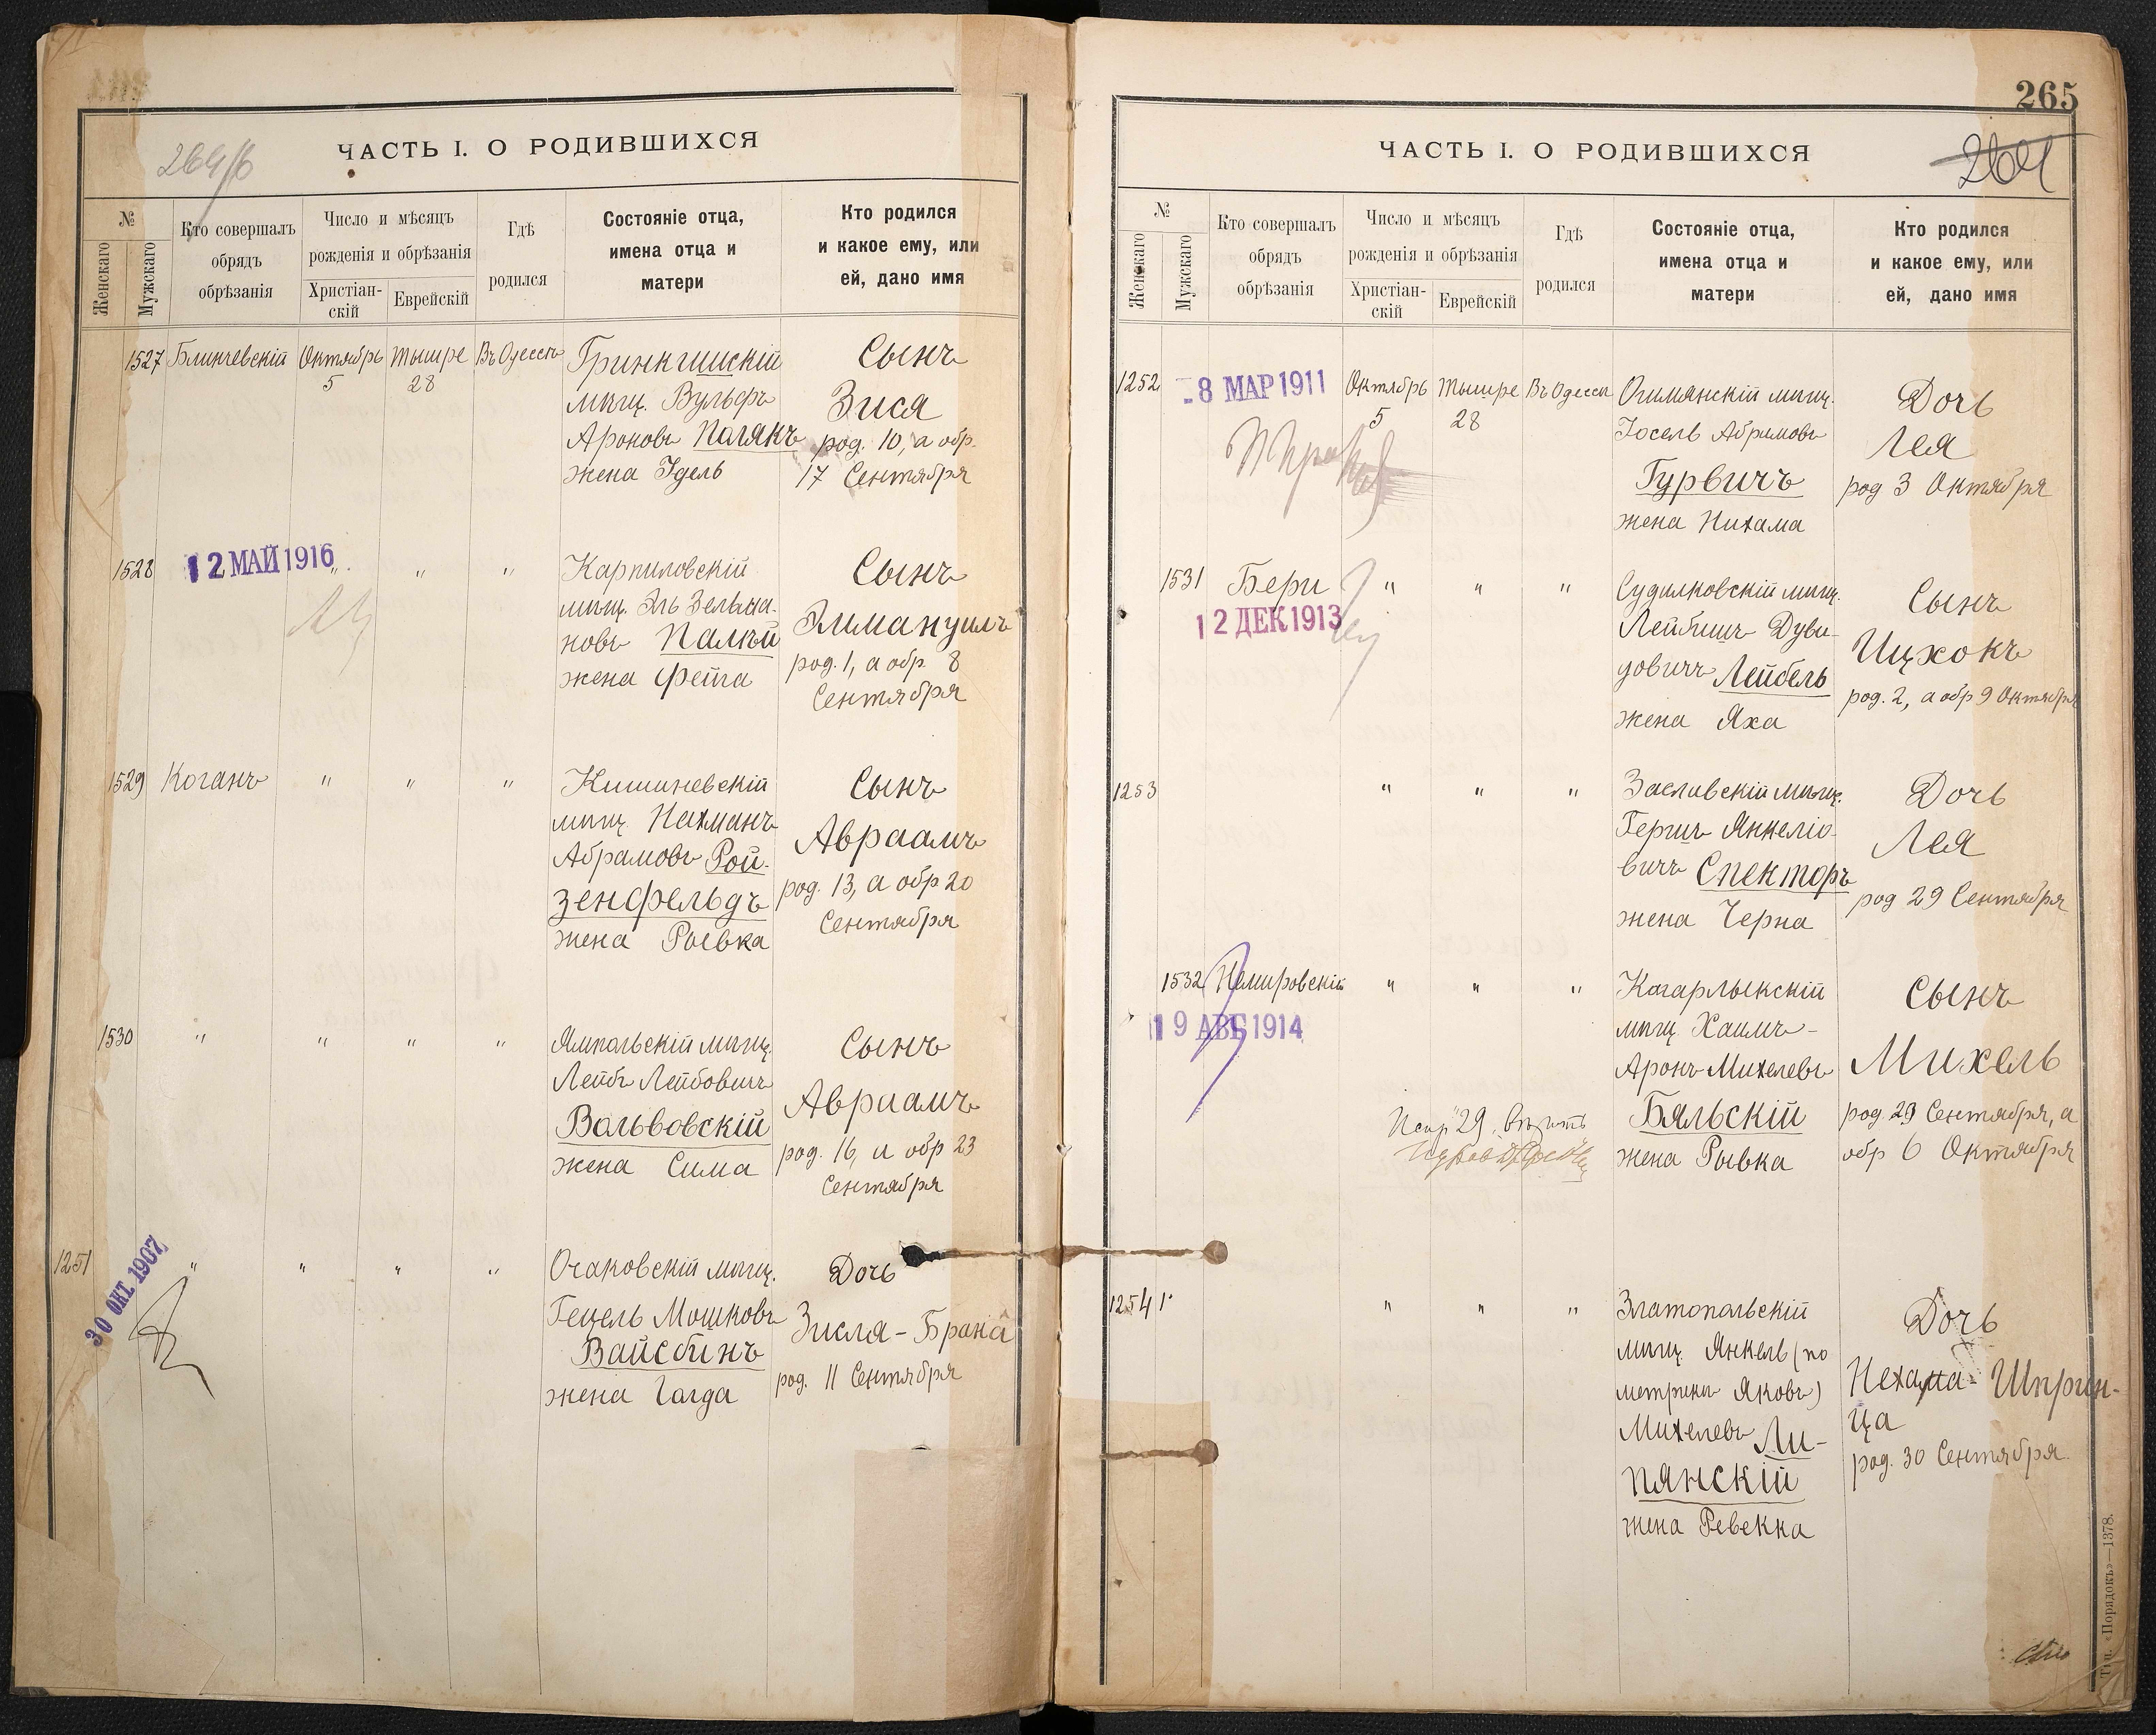 264/б
ЧАСТЬ I. О РОДИВШИХСЯ
№
Женскаго
Мужскаго
Кто совершалъ
обрядъ
обрѣзанія
Число и мѣсяцъ
рожденія и обрѣзанія
Христіан-
скій
Еврейскій
Гдѣ
родился
Состояніе отца,
имена отца и
матери
Кто родился
и какое ему, или
ей, дано имя
1527 Блинчевскій Октябрь Тышре Въ Одессѣ
5 28
Гринкишскій
мѣщ. Вульфъ
Ароновъ Полякъ
жена Идель
Сынъ
Зися
род. 10, а обр.
17 Сентября
1528 12 МАЙ 1916 " " "
Карпиловскій
мѣщ. Эль Зельма-
новъ Палѣй
жена Фейга
Сынъ
Эммануилъ
род. 1, а обр 8
Сентября
1529 Коганъ " " "
Кишиневскій
мѣщ. Нахманъ
Абрамовъ Рой-
зенфельдъ
жена Рывка
Сынъ
Авраамъ
род. 13, а обр 20
Сентября
1530 " " " "
Ямпольскій мѣщ.
Лейбъ Лейбовичъ
Вольвовскій
жена Сима
Сынъ
Авраамъ
род. 16, а обр 23
Сентября
1251 30 ОКТ. 1907 " " " "
Очаковскій мѣщ.
Гецель Мошковъ
Вайсбинъ
жена Голда
Дочь
Зисля-Брана
род. 11 Сентября
265
264
ЧАСТЬ I. О РОДИВШИХСЯ
№
Женскаго
Мужскаго
Кто совершалъ
обрядъ
обрѣзанія
Число и мѣсяцъ
рожденія и обрѣзанія
Христіан-
скій
Еврейскій
Гдѣ
родился
Состояніе отца,
имена отца и
матери
Кто родился
и какое ему, или
ей, дано имя
1252 8 МАР 1911 Октябрь Тышре Въ Одессѣ
5 28
Ошмянскій мѣщ.
Іосель Абрамовъ
Гурвичъ
жена Нихама
Дочь
Лея
род 3 Октября
1531 Бери " " "
12 ДЕК 1913
Судилковскій мѣщ.
Лейбишъ Дуви-
довичъ Лейбель
жена Яха
Сынъ
Ицхокъ
род. 2, а обр 9 Октября
1253 " " "
Заславскій мѣщ.
Гершъ Янкеліо-
вичъ Спекторъ
жена Черна
Дочь
Лея
род 29 Сентября
1532 Немировскій " " "
19 АВГ 1914
Кагарлыкскій
мѣщ. Хаимъ-
Аронъ Михелевъ
Бяльскій
жена Рывка
Сынъ
Михель
род 29 Сентября, а
обр 6 Октября
"29"
1254 " " "
Златопольскій
мѣщ. Янкель (по
метрикѣ Яковъ)
Михелевъ Ли-
пянскій
жена Ревекка
Дочь
Нехама-Шприн-
ца
род. 30 Сентября
Тип. «Порядокъ»—1378.